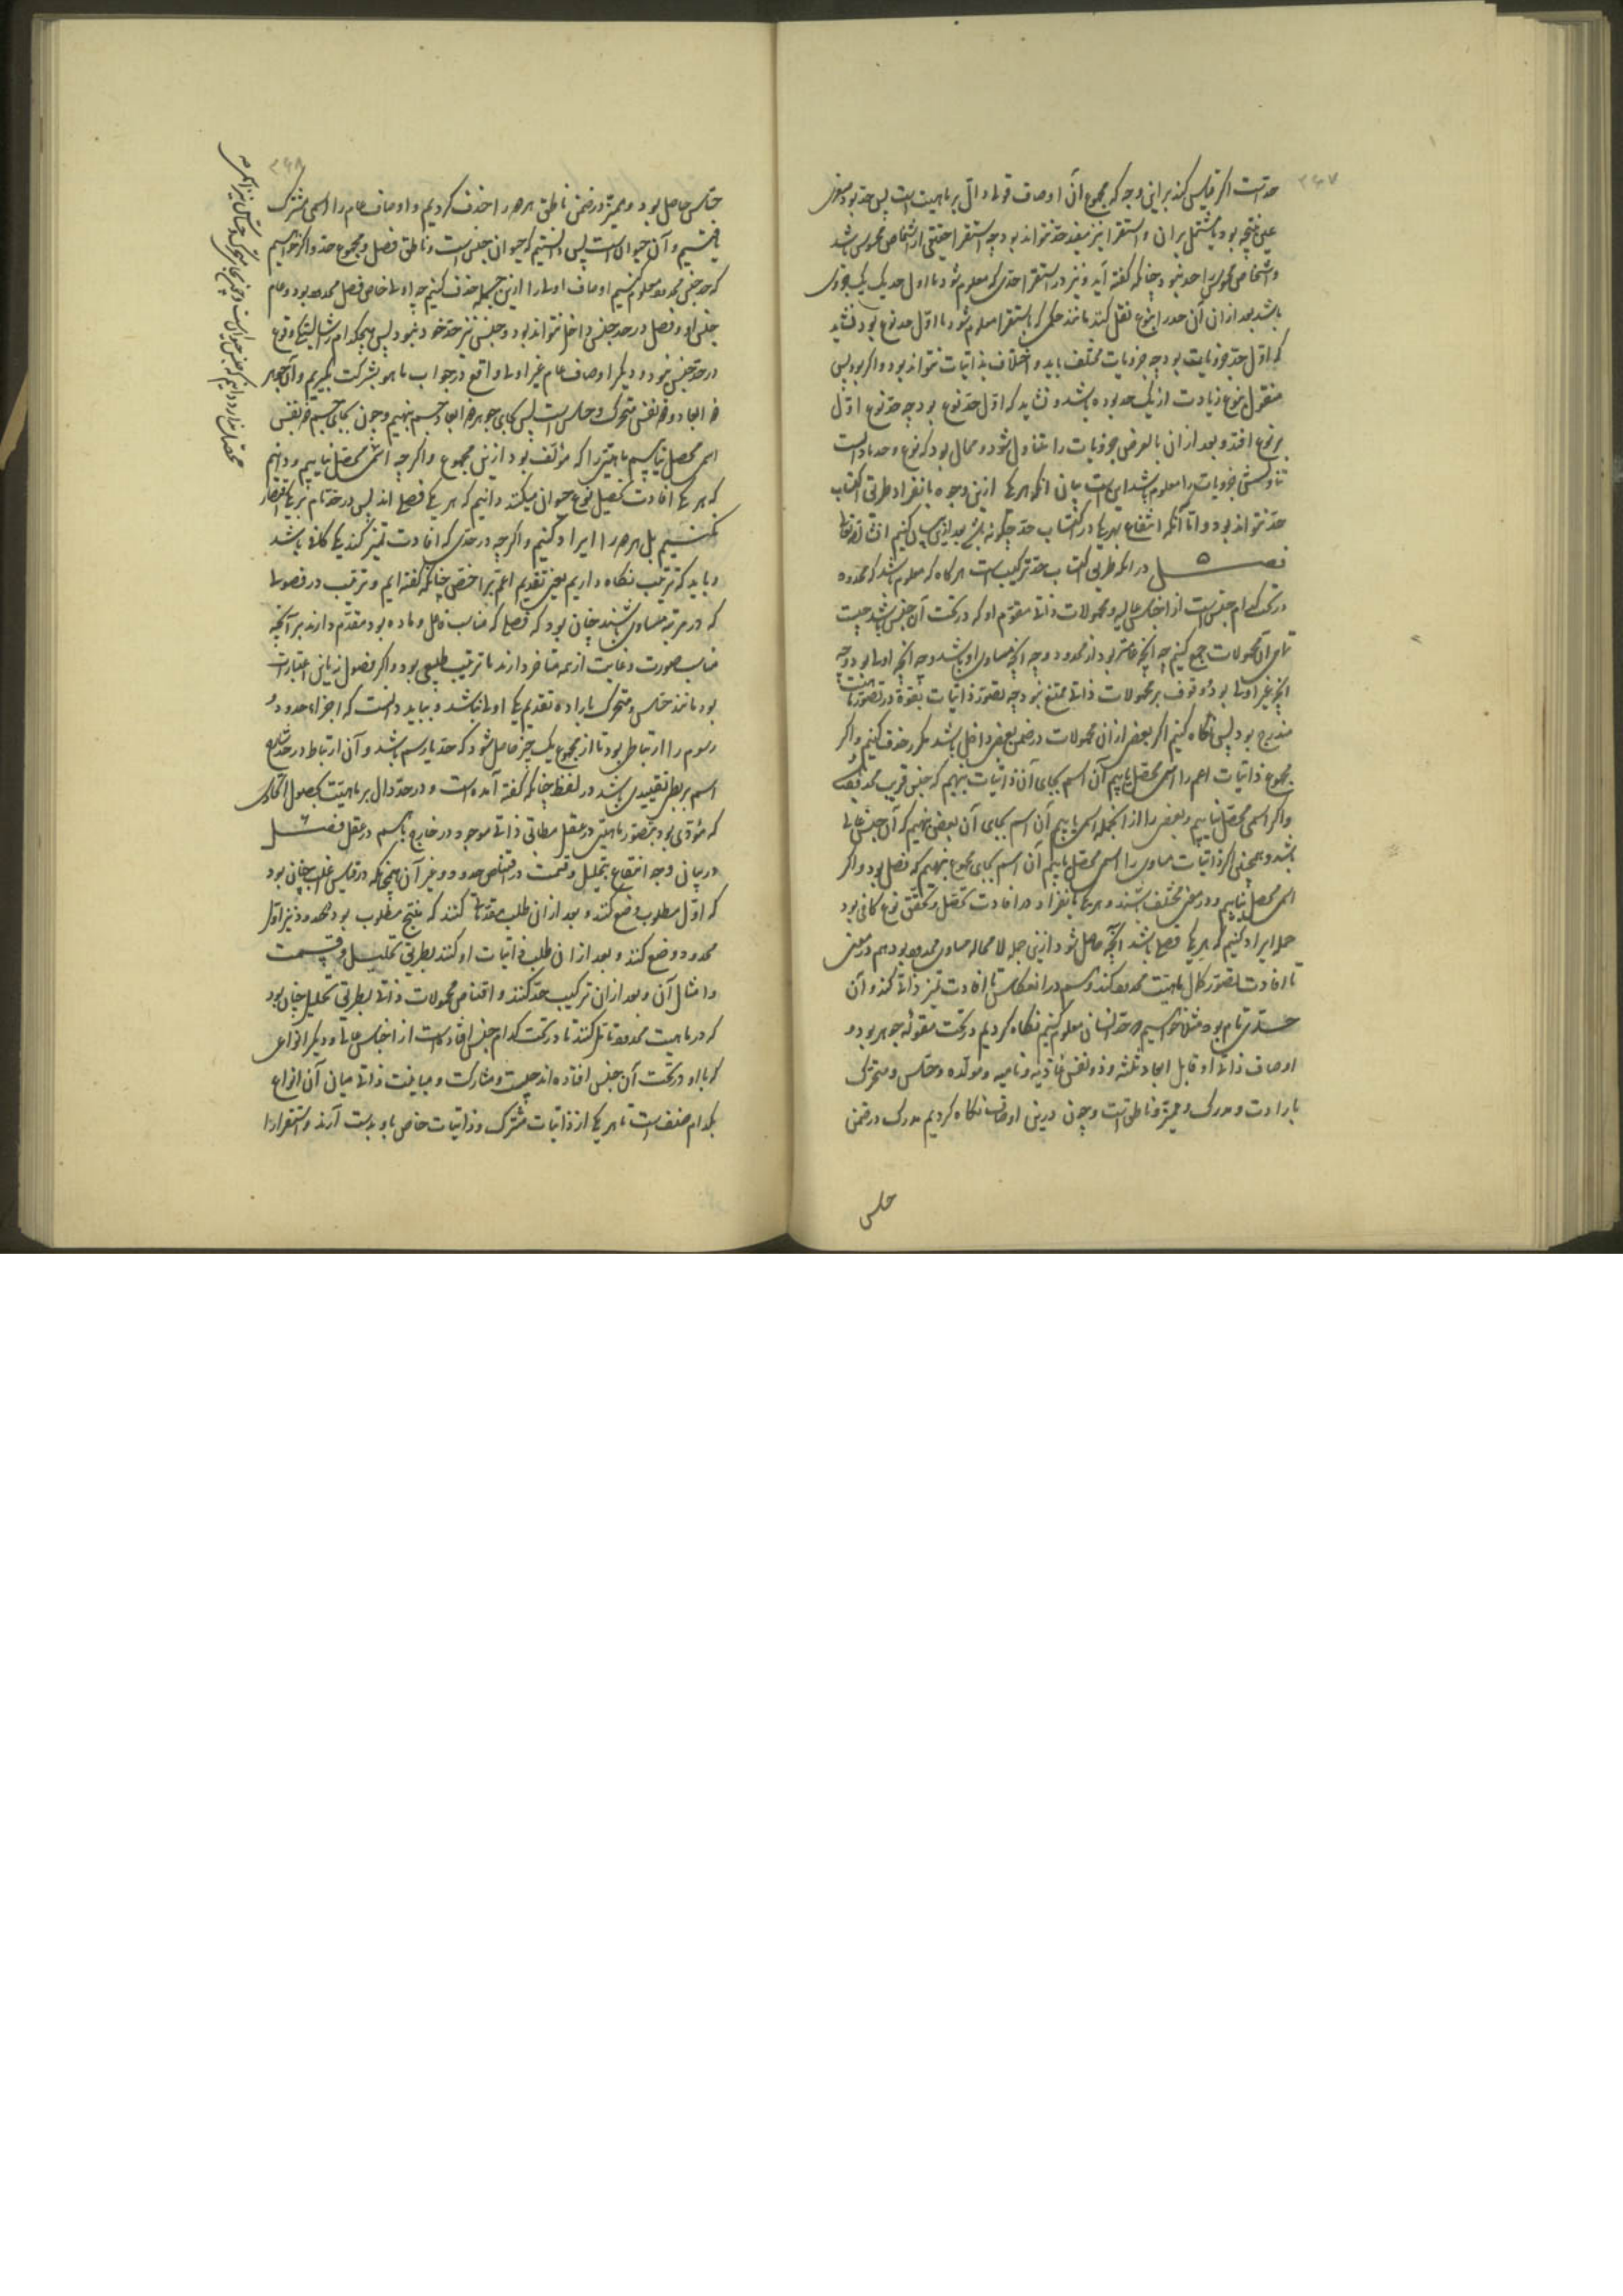 ۳۴۷
حدست اگر قیاس کند براین وجه که مجموع آن اوصاف قولی دال بر ماهیت است پس حد بود صغری
عین نتیجه بود یا مشتمل بران و استقرا نیز مفید حد نتواند بود چه استقرا حقیقی از اشخاص محسوس باشد
و اشخاص محسوس را حد نبود چنانکه گفته آید و نیز در استقرا حدی که معلوم شود یا اول حد یک یک جزوی
باشد بعد ازان آن حد را بنوع نقل کنند مانند حکمی که باستقرا معلوم شود یا اول حد نوع بود نشاید
که اول حد جزویات بود چه جزویات مختلف باید و اختلاف بذاتیات نتواند بود و اگر بود پس
منقول بنوع زیادت از یک حد بوده باشد و نشاید که اول حد نوع بود چه حد نوع اول
بر نوع افتد و بعد ازان بالعرض جزویات را متناول شود و محال بود که نوع و حد نادانسته
تناولش جزویات را معلوم باشد این است بیان آنکه هر یکی ازین وجوه بانفراد طریق اکتساب
حد نتواند بود و اما آنکه انتفاع بهر یکی در اکتساب حد چگونه باشد بعد ازین بیان کنیم انشاالله تعالی
فصل ۵ در آنکه طریق اکتساب حد ترکیب است هرگاه که معلوم باشد که محدود
در تحت کدام جنس است از اجناس عالیه و محمولات ذاتی مقوم او که در تحت آن جنس باشد چیست
تمامی آن محمولات جمع کنیم چه آنچه خاصتر بود از محدود و چه آنچه مساوی او باشد و چه آنچه اولی بود و چه
آنچه غیر اولی بود و وقوف بر محمولات ذاتی ممتنع نبود چه تصور ذاتیات بقوة در تصور ماهیت
مندرج بود پس نگاه کنیم اگر بعضی ازان محمولات در ضمن بعضی داخل باشد مکرر حذف کنیم و اگر
مجموع ذاتیات اعم را اسمی محصل یابیم آن اسم بجای آن ذاتیات بنهیم که جنس قریب محدود بود
و اگر اسمی محصل نیابیم و بعضی را از آنجمله اسمی یابیم آن اسم بجای آن بعضی بنهیم که آن جنس عالی
باشد و همچنین اگر ذاتیات مساوی را اسمی محصل یابیم آن اسم بجای مجموع بنهیم که فصل بود و اگر
اسمی محصل نیابیم و در معنی مختلف باشند و هر یکی بانفراد در افادت تحصل و تحقق نوع کافی بود
جمله ایراد کنیم که هر یکی فصلی باشد آنچه حاصل شود ازین جمله لا محاله مساوی محدود بود هم در معنی
تا افادت تصور کمال ماهیت محدود کند و هم در انعکاس تا افادت تمیز ذاتی کند و آن
حدی تام بود مثلا خواستیم که حد انسان معلوم کنیم نگاه کردیم در تحت مقوله جوهر بود و
اوصاف ذاتی او قابل ابعاد ثلثه و ذو نفس غاذیه و نامیه و مولده و حساس و متحرک
بارادت و مدرک و ممیز و ناطق است و چون درین اوصاف نگاه کردیم مدرک در ضمن
حساس
۳۴۸
حساس حاصل بود و ممیز در ضمن ناطق هر دو را حذف کردیم و اوصاف عام را اسمی مشترک
یافتیم و آن حیوان است پس دانستیم که حیوان جنس است و ناطق فصل و مجموع حد و اگر خواستیم
که حد جنس محدود معلوم کنیم اوصاف اولی را ازین جمله حذف کنیم چه اولی خاص فصل محدود بود و عام
جنس او و فصل در حد جنس داخل نتواند بود و جنس نیز حد خود نبود پس هیچکدام را شایستگی وقوع
در حد جنس نبود و دیگر اوصاف عام غیر اولی واقع در جواب ما هو بشرکت بگیریم و آن جوهر
ذو ابعاد و ذو نفس متحرک و حساس است پس بجای جوهر ذو ابعاد جسم بنهیم و چون بجای جسم ذو نفس
اسمی محصل نیابیم ماهیتی را که مؤلف بود ازین مجموع و اگر چه اسمی محصل نیابیم و دانیم
که هر یکی افادت تحصیل نوع حیوان میکند دانیم که هر یکی فصلی اند پس در حد تام بر یکی اقتصار
نکنیم بل هر دو را ایراد کنیم و اگر چه در حدی که افادت تمیز کند یکی کافی باشد
و باید که ترتیب نگاه داریم یعنی تقدیم اعم بر اخص چنانکه گفته ایم و ترتیب در فصولی
که در مرتبه متساوی باشند چنان بود که فصلی که مناسب فاعل و ماده بود مقدم دارند بر آنچه
مناسب صورت و غایت از همه متاخر دارند تا ترتیب طبیعی بود و اگر فصول نه باین اعتبارات
بود مانند حساس و متحرک باراده تقدیم یکی اولی نباشد و بباید دانست که اجزاء حدود و
رسوم را ارتباطی بود تا از مجموع یک چیز حاصل شود که حد یا رسم باشد و آن ارتباط در حد شارح
اسم بربطی تقییدی باشد در لفظ چنانکه گفته آمده است و در حد دال بر ماهیت بحصول اتحادی
که مؤدی بود بتصور ماهیتی در عقل مطابق ذاتی موجود در خارج یا هم در عقل فصل ۶
در بیان وجه انتفاع بتحلیل و قسمت در اقتناص حدود و غیر آن همچنانکه در قیاس اغلب چنان بود
که اول مطلوب وضع کنند و بعد ازان طلب مقدماتی کنند که منتج مطلوب بود در حدود نیز اول
محدود وضع کنند و بعد ازان طلب ذاتیات او کنند بطریق تحلیل و قسمت
و امثال آن و بعد ازان ترکیب حد کنند و اقتناص محمولات ذاتی بطریق تحلیل چنان بود
که در ماهیت محدود تامل کنند تا در تحت کدام جنس افتاده است از اجناس عالی و دیگر انواعی
که با او در تحت آن جنس افتاده اند چیست و مشارکت و مباینت ذاتی میان آن انواع
بکدام صنف است تا هر یکی از ذاتیات مشترک و ذاتیات خاص باو بدست آرند و استقرا را